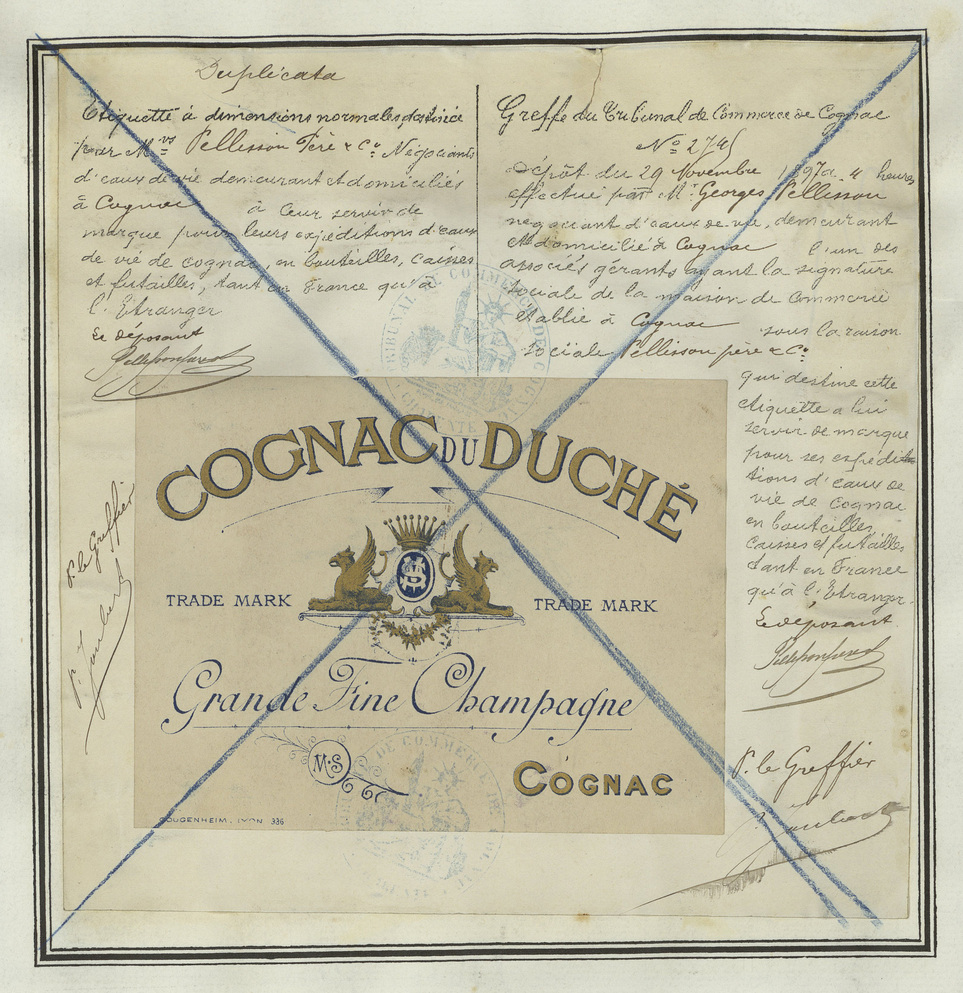 Duplicata
Etiquette à dimensions normales destinée
par Mrs Pellisson Père & Co Négociants
d'eaux de vie demeurant et domiciliés
à Cognac à leur servir de
marque pour leurs expéditions d'eaux
de vie de cognac, en bouteilles, caisses
et futailles, tant en France qu'à
l'Etranger
Le déposant
Greffe du Tribunal de Commerce de Cognac
No
Dépôt du 29 Novembre 1897 à 4 heures
effectué par Mr Georges Pellisson
négociant d'eaux de vie, demeurant
et domicilié à Cognac l'un des
associés gérants ayant la signature
sociale de la maison de commerce
établie à Cognac sous la raison
sociale Pellisson père & Co
qui destine cette
étiquette à lui
servir de marque
pour ses expédi-
tions d'eaux de
vie de Cognac
en bouteilles,
caisses et futailles
tant en France
qu'à l'Etranger.
Le déposant
P. le Greffier
P. le Greffier
TRIBUNAL DE COMMERCE DE COGNAC
CHARENTE
COGNAC DU DUCHÉ
TRADE MARK
TRADE MARK
Grande Fine Champagne
M.S
COGNAC
GOUGENHEIM, LYON 336
DE COMMERCE DE